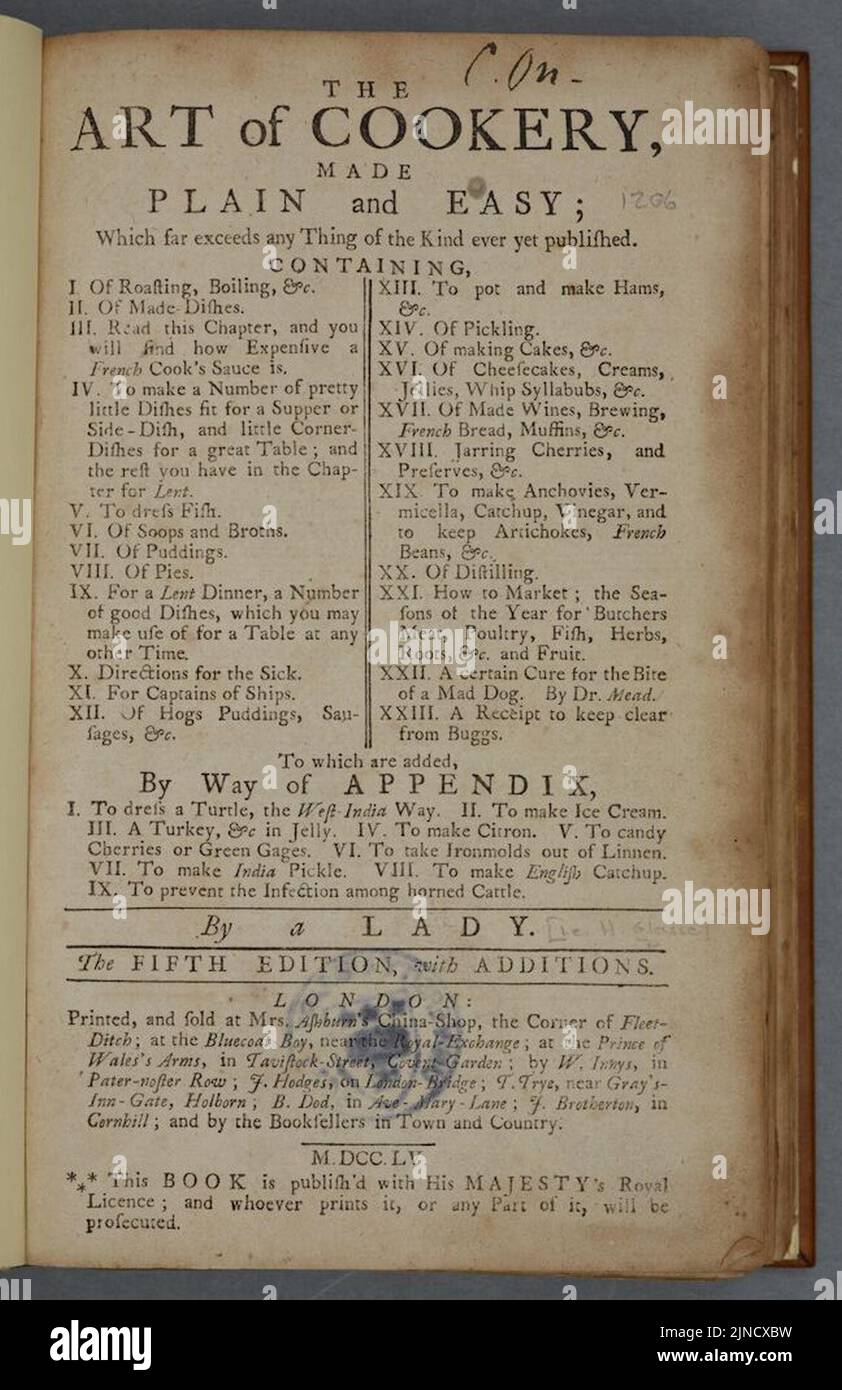 C. On-
THE
ART of COOKERY,
MADE
PLAIN and EASY;
1206
Which far exceeds any Thing of the Kind ever yet publiſhed.
CONTAINING,
I. Of Roaſting, Boiling, &c.
II. Of Made-Diſhes.
III. Read this Chapter, and you
will find how Expenſive a
French Cook's Sauce is.
IV. To make a Number of pretty
little Diſhes fit for a Supper or
Side-Diſh, and little Corner-
Diſhes for a great Table; and
the reſt you have in the Chap-
ter for Lent.
V. To dreſs Fiſh.
VI. Of Soops and Broths.
VII. Of Puddings.
VIII. Of Pies.
IX. For a Lent Dinner, a Number
of good Diſhes, which you may
make uſe of for a Table at any
other Time.
X. Directions for the Sick.
XI. For Captains of Ships.
XII. Of Hogs Puddings, Sau-
ſages, &c.
XIII. To pot and make Hams,
&c.
XIV. Of Pickling.
XV. Of making Cakes, &c.
XVI. Of Cheeſecakes, Creams,
Jellies, Whip Syllabubs, &c.
XVII. Of Made Wines, Brewing,
French Bread, Muffins, &c.
XVIII. Jarring Cherries, and
Preſerves, &c.
XIX. To make Anchovies, Ver-
micella, Catchup, Vinegar, and
to keep Artichokes, French
Beans, &c.
XX. Of Diſtilling.
XXI. How to Market; the Sea-
ſons of the Year for Butchers
Meat, Poultry, Fiſh, Herbs,
Roots, &c. and Fruit.
XXII. A certain Cure for the Bite
of a Mad Dog. By Dr. Mead.
XXIII. A Receipt to keep clear
from Buggs.
To which are added,
By Way of APPENDIX,
I. To dreſs a Turtle, the Weſt-India Way. II. To make Ice Cream.
III. A Turkey, &c in Jelly. IV. To make Citron. V. To candy
Cherries or Green Gages. VI. To take Ironmolds out of Linnen.
VII. To make India Pickle. VIII. To make Engliſh Catchup.
IX. To prevent the Infection among horned Cattle.
By a LADY.
The FIFTH EDITION, with ADDITIONS.
LONDON:
Printed, and ſold at Mrs. Aſhburn's China-Shop, the Corner of Fleet-
Ditch; at the Bluecoat Boy, near the Royal-Exchange; at the Prince of
Wales's Arms, in Taviſtock-Street, Covent-Garden; by W. Innys, in
Pater-noſter Row; J. Hodges, on London-Bridge; T. Trye, near Gray's-
Inn-Gate, Holborn; B. Dod, in Ave-Mary-Lane; J. Brotherton, in
Cornhill; and by the Bookſellers in Town and Country.
M.DCC.LV
*** This BOOK is publiſh'd with His MAJESTY's Royal
Licence; and whoever prints it, or any Part of it, will be
proſecuted.
alamy
Image ID: 2JNCXBW
www.alamy.com